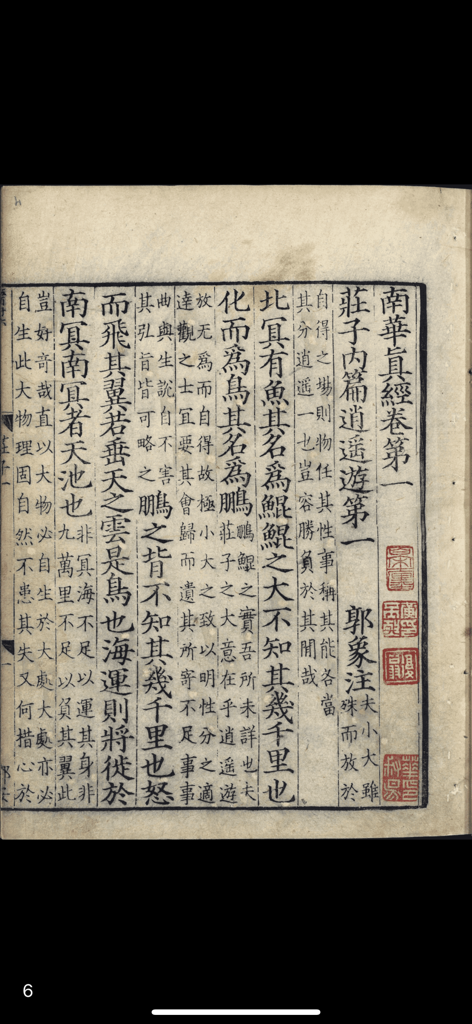 南華眞經卷第一
莊子内篇逍遥遊第一 郭象注 夫小大雖
殊而放於
自得之場則物任其性事稱其能各當
其分逍遥一也豈容勝負於其閒哉
北冥有魚其名爲鯤鯤之大不知其幾千里也
化而爲鳥其名爲鵬 鵬鯤之實吾所未詳也夫
莊子之大意在乎逍遥遊
放无爲而自得故極小大之致以明性分之適
達觀之士冝要其會歸而遺其所寄不足事事
曲與生說自不害
其弘旨皆可略之
鵬之背不知其幾千里也怒
而飛其翼若垂天之雲是鳥也海運則將徙於
南冥南冥者天池也 非冥海不足以運其身非
九萬里不足以負其翼此
豈好奇哉直以大物必自生於大處大處亦必
自生此大物理固自然不患其失又何措心於
莊子一
6